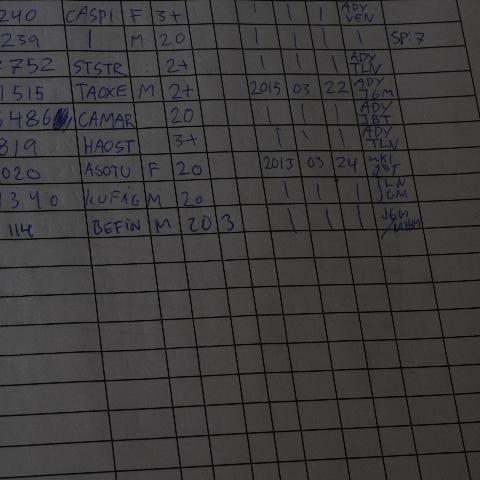 240 CASPI F 3+ | | | ADY VEN
239 | M 20 | | | | SP:7
752 STSTR 2+ | | | ADY TLN
1515 TAOXE M 2+ 2015 03 22 ADY JGM
6486 CAMAR 20 | | | ADY JBT
819 HAOST 3+ | | | ADY TLN
020 ASOTU F 20 2015 03 24 MKL JBT
1340 M 20 | | | TLN JGM
114 BEFIN M 20 3 | | | JGM /MHM